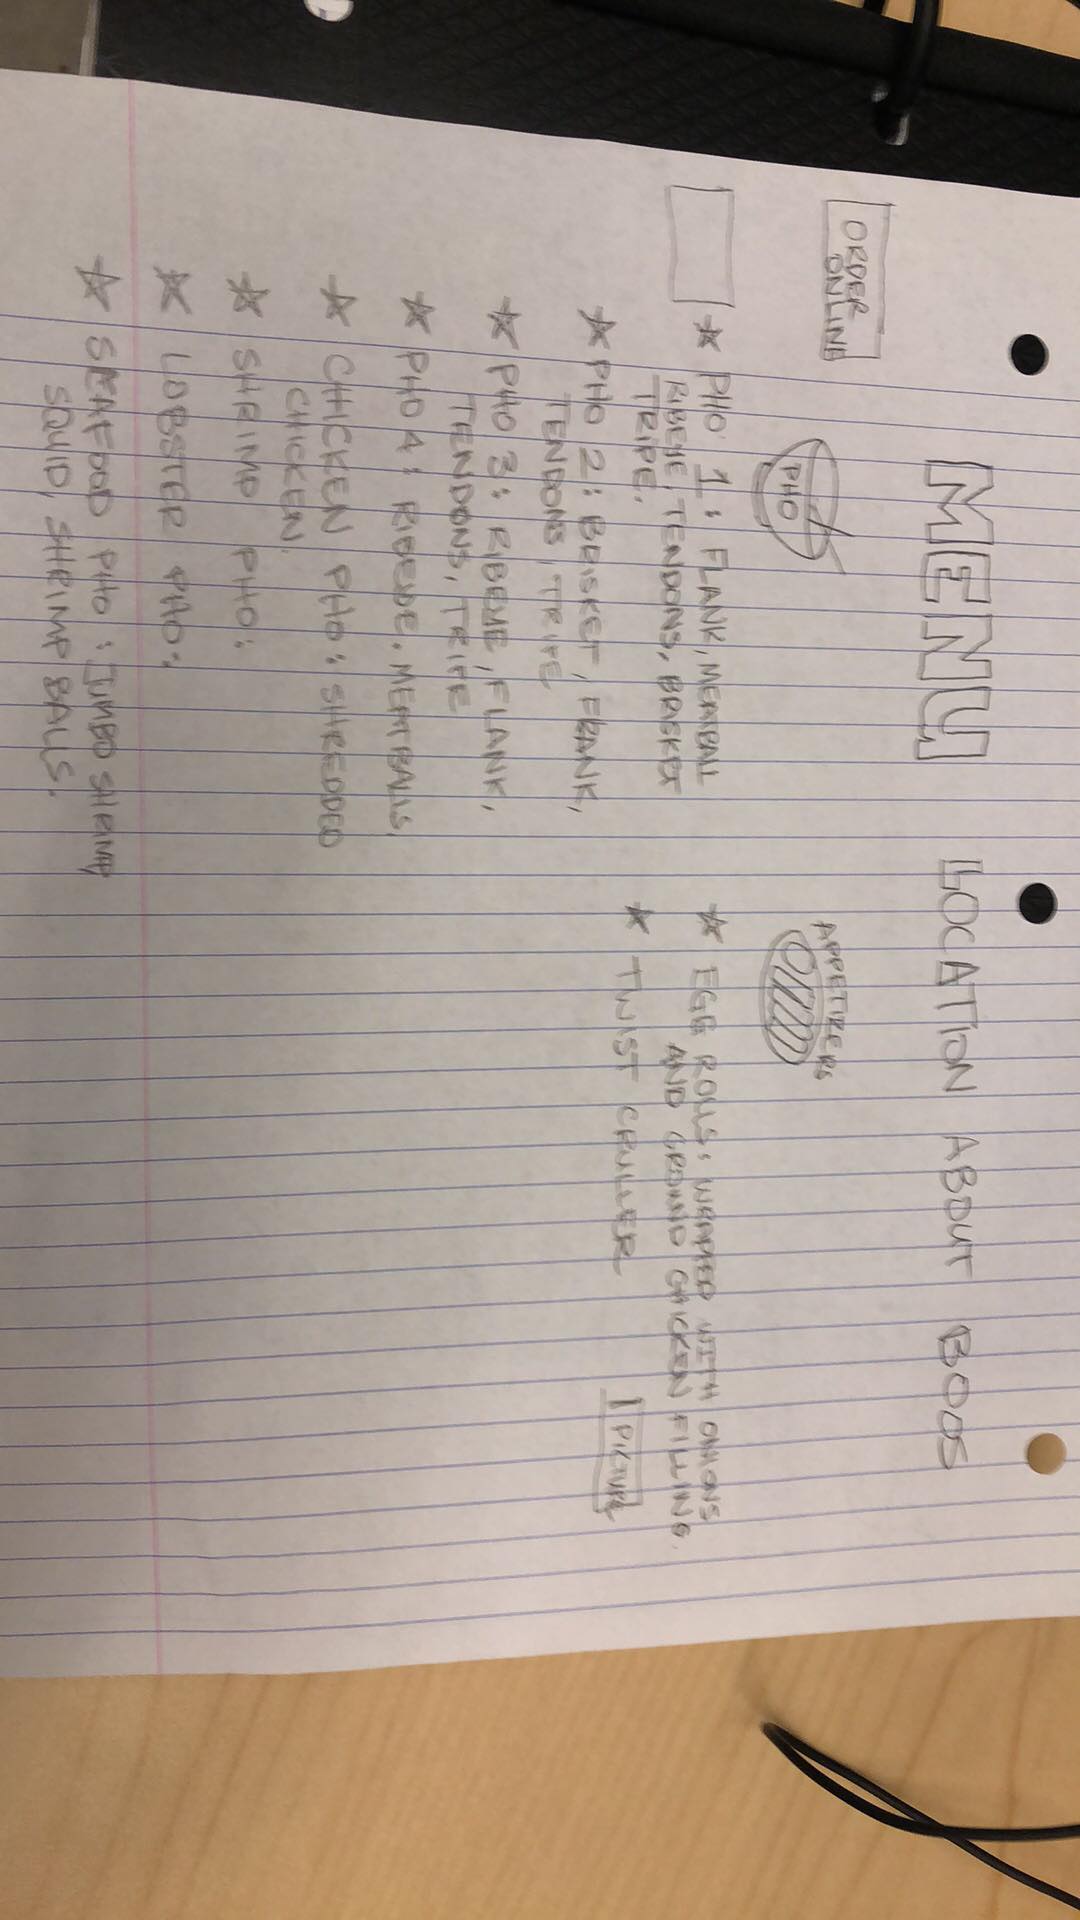 MENU LOCATION ABOUT BOOS
ORDER
ONLINE
PHO
PHO 1: FLANK, MEATBALL
RIBEYE, TENDONS, BRISKET
TRIPE.
PHO 2: BRISKET, FLANK,
TENDONS, TRIPE
PHO 3: RIBEYE, FLANK,
TENDONS, TRIPE
PHO 4: RIBEYE, MEATBALLS,
CHICKEN PHO: SHREDDED
CHICKEN.
SHRIMP PHO:
LOBSTER PHO:
SEAFOOD PHO: JUMBO SHRIMP
SQUID, SHRIMP BALLS.
APPETIZERS
EGG ROLLS: WRAPPED WITH ONIONS
AND GROUND CHICKEN FILLING.
TWIST CRULLER
1 PICTURE